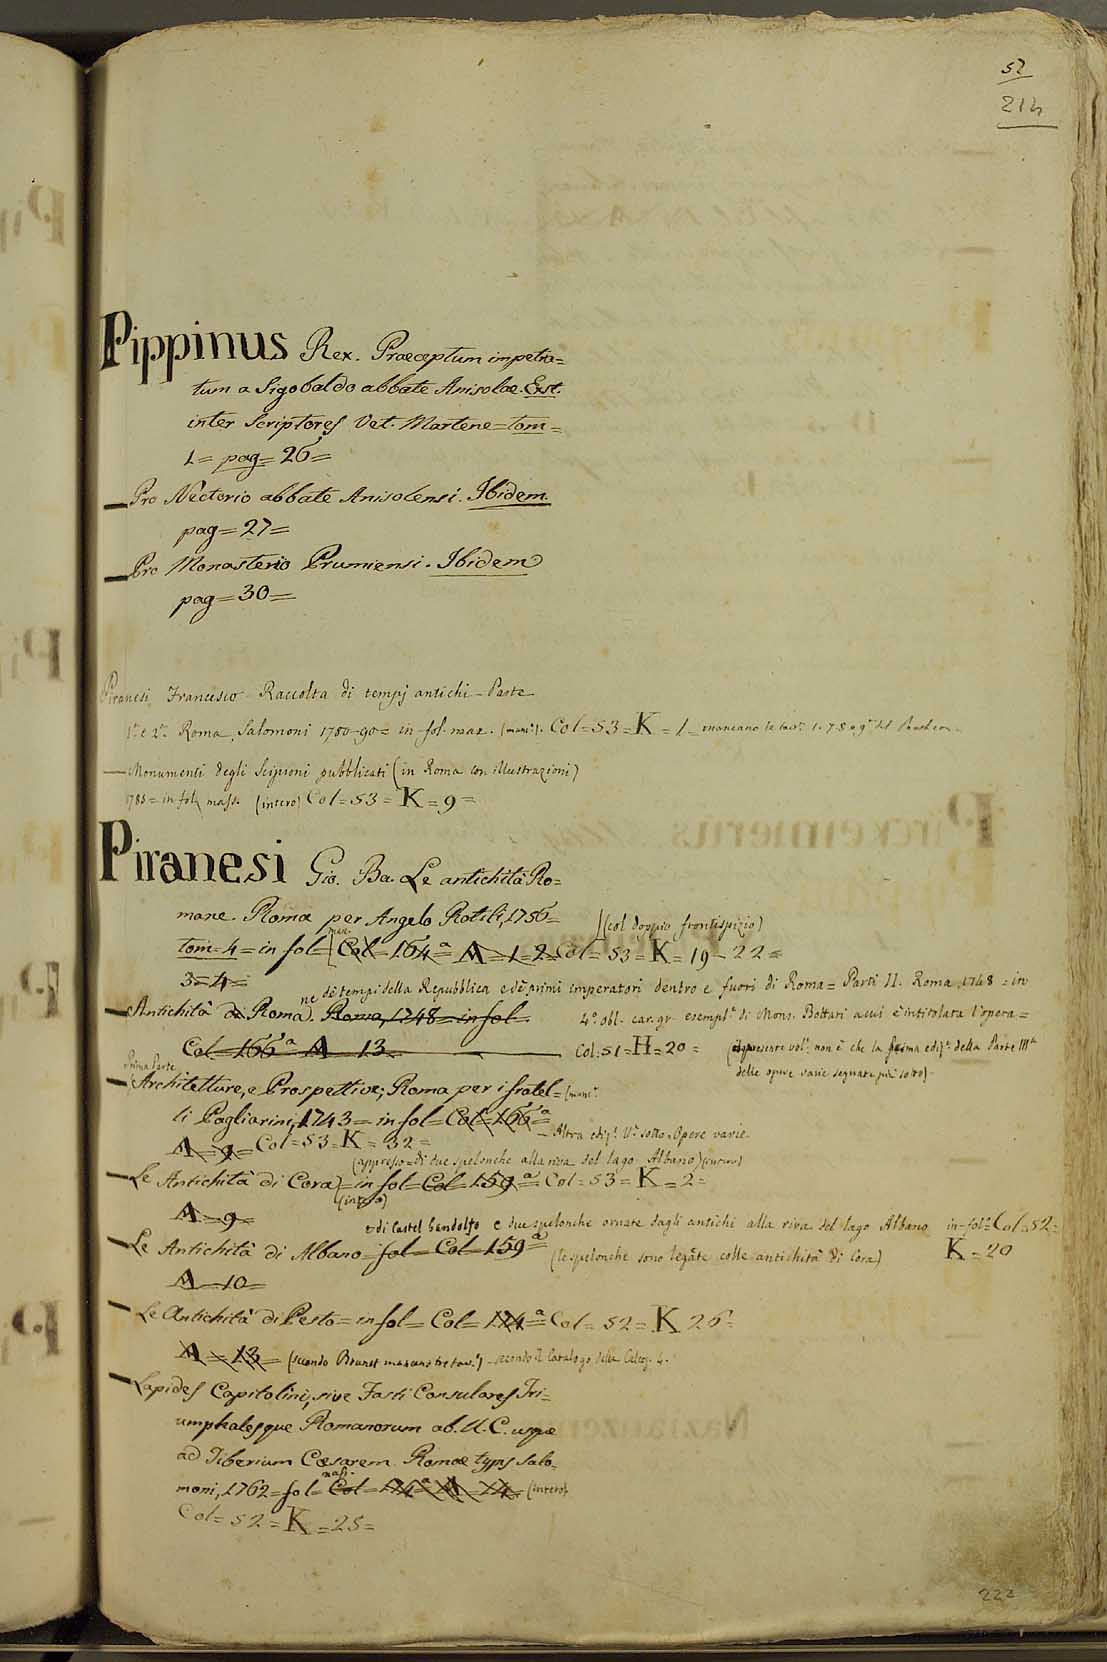 52
214
Pippinus Rex. Præceptum impetra=
tum a Sigobaldo abbate Anisolæ. Ext.
inter Scriptores Vet. Martene = tom =
1 = pag = 26 =
— Pro Nectario abbate Anisolensi. Ibidem.
pag = 27 =
— Pro Monasterio Prumiensi. Ibidem
pag = 30 =
Piranesi Francesco Raccolta di tempj antichi - Parte
1ª e 2ª Roma, Salomoni 1780-90 = in fol. max. (manc.) Col = 53 = K = 1 - mancano le tav. 1. 7. 8. e 9ª del Pantheon.
— Monumenti degli Scipioni pubblicati (in Roma con illustrazioni)
1785 = in fol. mass. (intero) Col = 53 = K = 9 =
Piranesi Gio. Ba. Le antichità Ro=
mane. Romæ per Angelo Rotilj, 1756 =
(col doppio frontispizio)
tom = 4 = in fol = max. Col = 164ª = A = 1 = 2 = Col = 53 = K = 19 - 22 =
3 = 4 =
de' tempi della Repubblica e de' primi imperatori dentro e fuori di Roma = Parti II. Roma, 1748 = in
— Antichità di Romane. Roma, 1748 = in fol
4º obl. car. gr. esempl.e di Mons. Bottari a cui è intitolata l'opera =
Col = 166ª A 13
Col: 51 = H = 20 =
(il presente vol. non è che la prima ediz.e della Parte IIIª
delle opere varie segnate più sotto)
Prima Parte
— Architetture, e Prospettive; Roma per i fratel= (manc.
li Pagliarini, 1743 = in fol = Col = 166ª =
— Altra ediz. Vª sotto Opere varie.
A = 9 = Col = 53 = K = 32 =
(appresso = di due spelonche alla riva del lago Albano)
— Le Antichità di Cora = in fol = Col = 159ª = Col = 53 = K = 2 =
(intero)
A = 9 =
e di Castel Gandolfo e due spelonche ornate dagli antichi alla riva del lago Albano in-fol = Col = 52 =
— Le Antichità di Albano = fol = Col = 159ª =
(le spelonche sono legate colle antichità di Cora)
K = 20
A = 10 =
— Le Antichità di Pesto = in fol = Col = 174ª = Col = 52 = K 26 =
A = 13 = (secondo Brunet mancano tre tav.e) - secondo il Catalogo della Calcog. 4.
— Lapides Capitolini, sive Fasti Consulares Tri=
umphalesque Romanorum ab. U. C. usque
ad Tiberium Cæsarem. Romæ typis Salo=
moni, 1762 = fol = mass. Col = 174ª = A = 14 = (intero)
Col = 52 = K = 25 =
222